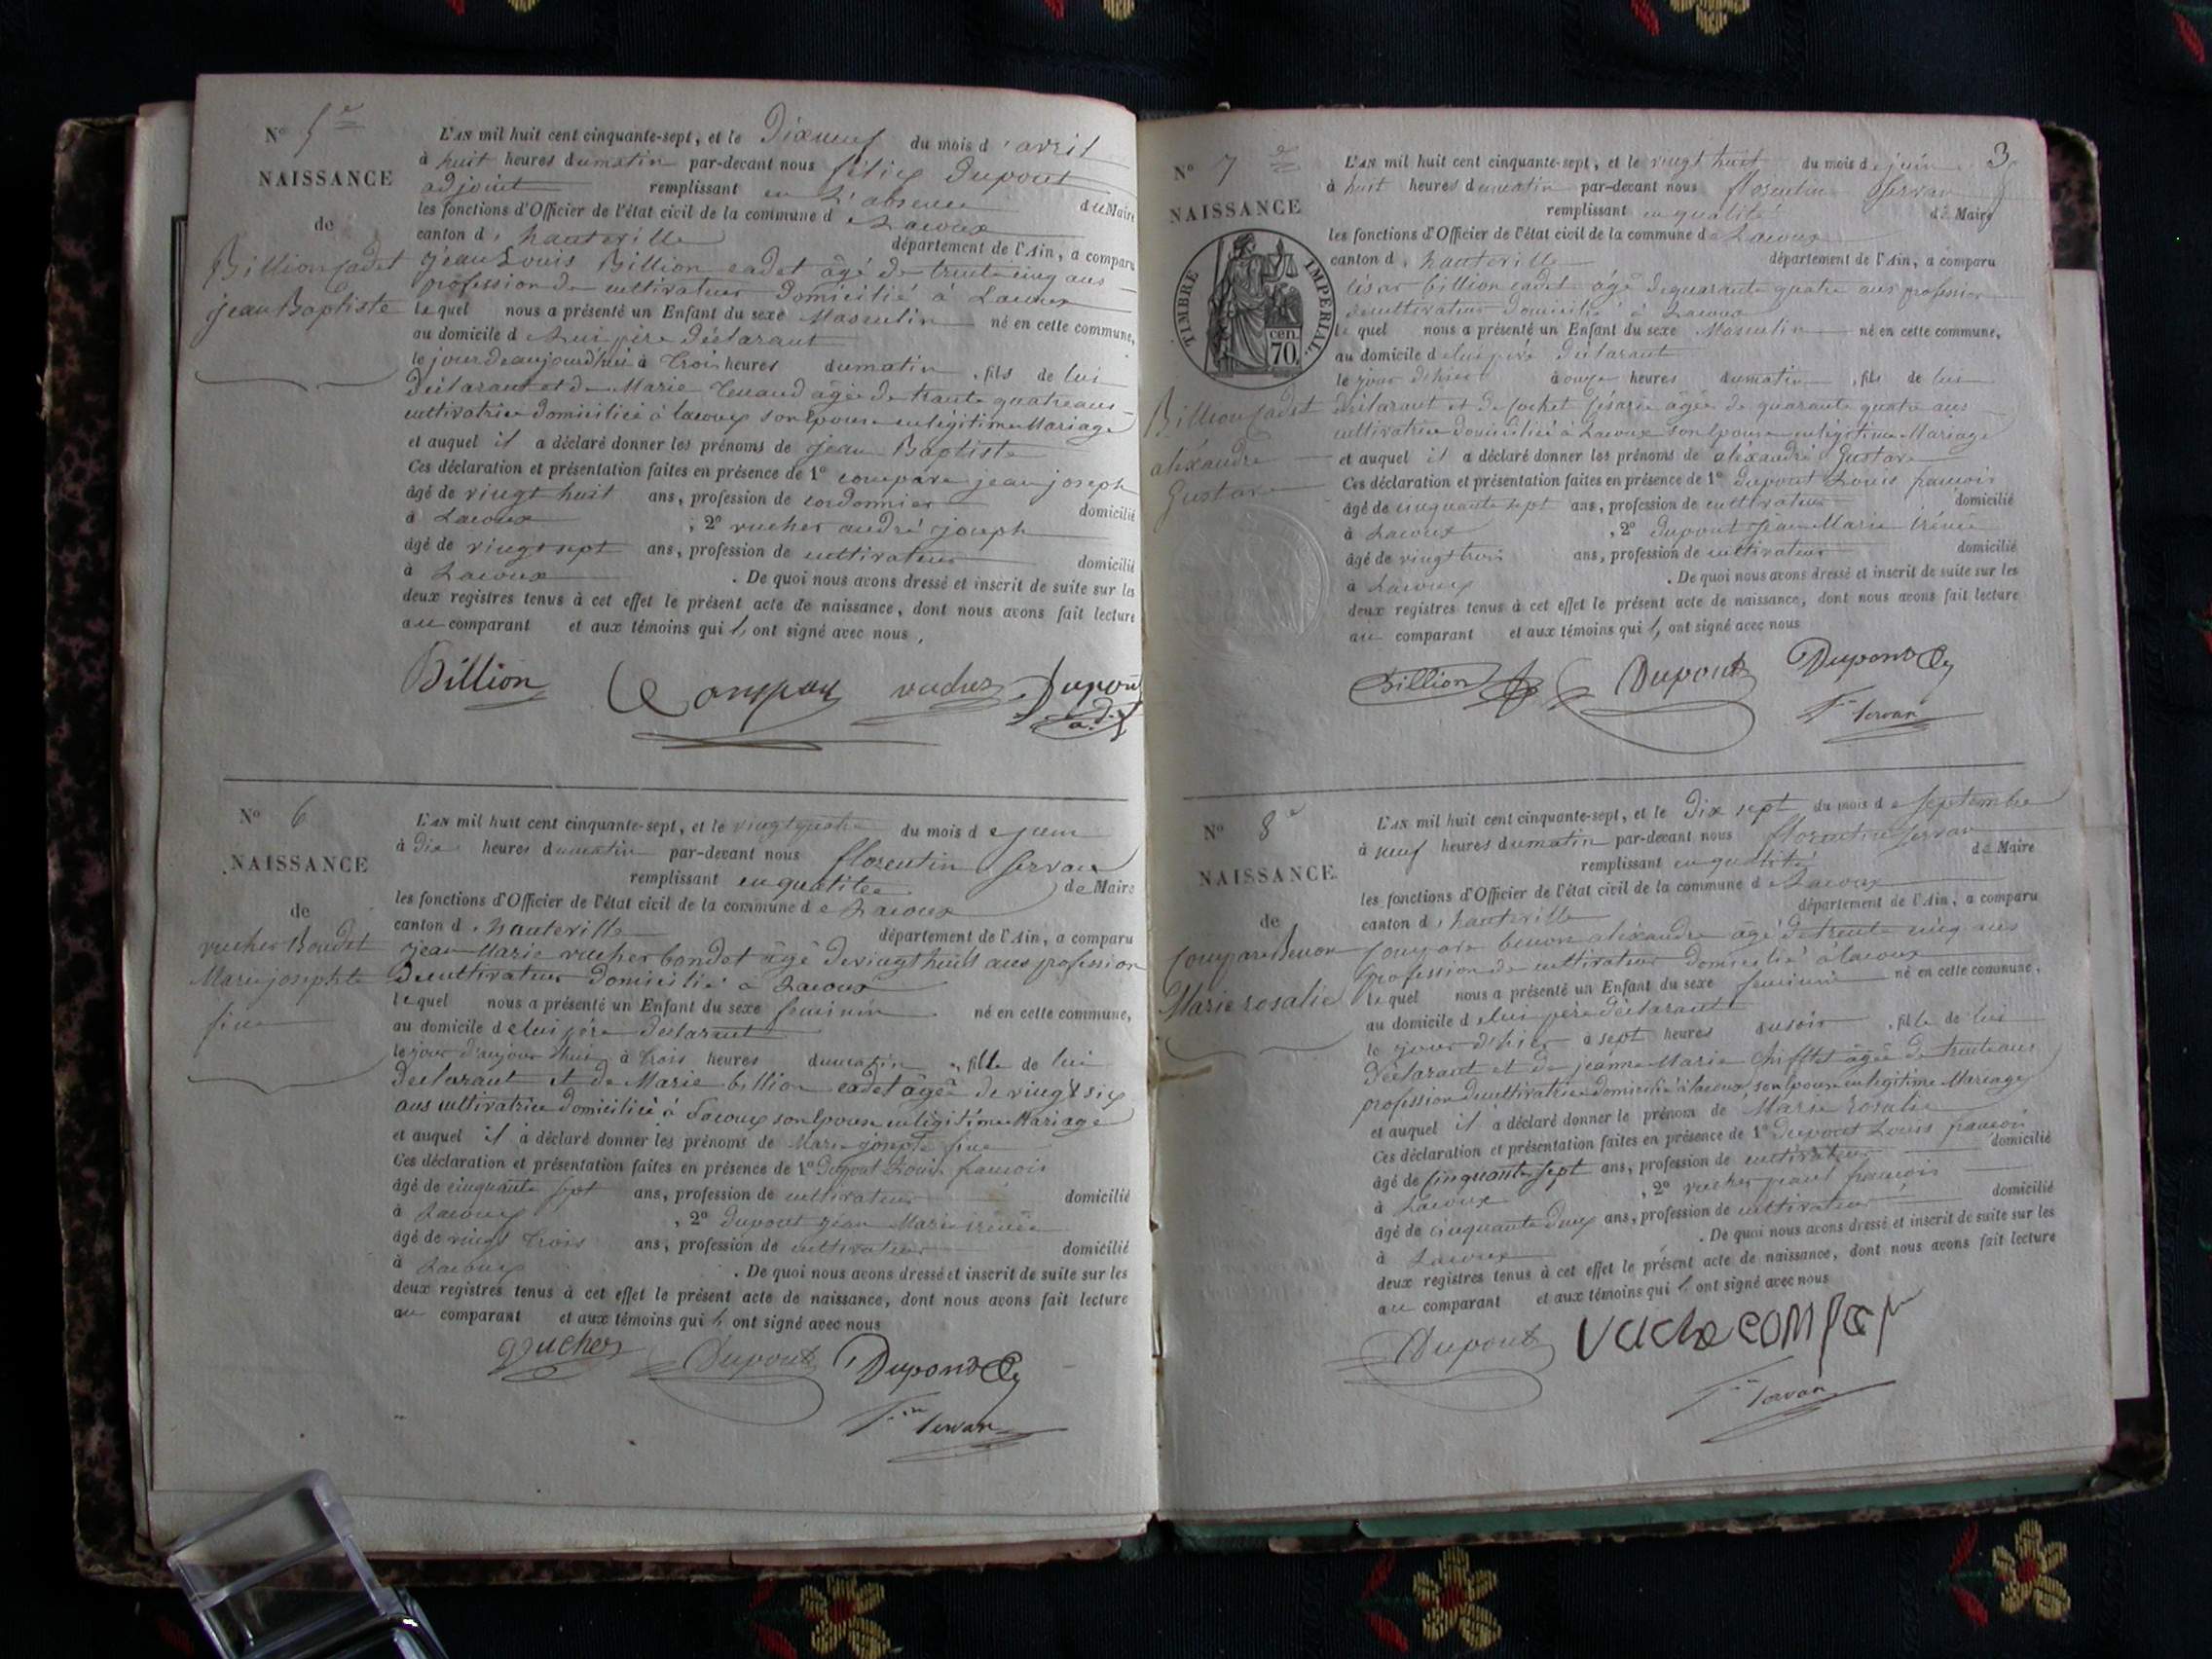 N° 5e
NAISSANCE
de
Billion Cadet
jean Baptiste
L'AN mil huit cent cinquante-sept, et le Dixneuf du mois d'avril
à huit heures du matin par-devant nous félix Dupont
adjoint remplissant en L'absence du Maire
les fonctions d'Officier de l'état civil de la commune de Lacoux
canton d'hauteville département de l'Ain, a comparu
jean Louis Billion cadet âgé de trente cinq ans
profession de cultivateur domicilié à Lacoux
lequel nous a présenté un Enfant du sexe Masculin né en cette commune,
au domicile de Lui père déclarant
le jour deaujourd'hui à trois heures du matin, fils de lui
déclarant et de Marie Tenand âgée de trante quatre ans
cultivatrice domiciliée à lacoux son épouse en légitime Mariage
et auquel il a déclaré donner les prénoms de jean Baptiste
Ces déclaration et présentation faites en présence de 1° compare jean joseph
âgé de vingt huit ans, profession de cordonnier domicilié
à Lacoux , 2° rucher andré joseph
âgé de vingt sept ans, profession de cultivateur domicilié
à Lacoux . De quoi nous avons dressé et inscrit de suite sur les
deux registres tenus à cet effet le présent acte de naissance, dont nous avons fait lecture
au comparant et aux témoins qui l, ont signé avec nous,
Billion Compar rucher Dupont
adj
N° 6
NAISSANCE
de
rucher Bondet
Marie josephte
fine
L'AN mil huit cent cinquante-sept, et le vingt quatre du mois de juin
à dix heures du matin par-devant nous florentin Servan
remplissant en qualitée de Maire
les fonctions d'Officier de l'état civil de la commune de Lacoux
canton d'hauteville département de l'Ain, a comparu
jean Marie rucher bondet âgé de vingt huit ans profession
de cultivateur domicilié à Lacoux
lequel nous a présenté un Enfant du sexe feminin né en cette commune,
au domicile de lui père déclarant
le jour d'aujour d'hui à trois heures du matin, fille de lui
déclarant et de Marie billion cadet âgée de vingt six
ans cultivatrice domiciliée à Lacoux son épouse en légitime Mariage
et auquel il a déclaré donner les prénoms de Marie josephte fine
Ces déclaration et présentation faites en présence de 1° Dupont Louis francois
âgé de cinquante sept ans, profession de cultivateur domicilié
à Lacoux , 2° dupont jean Marie irénée
âgé de vingt trois ans, profession de cultivateur domicilié
à Lacoux . De quoi nous avons dressé et inscrit de suite sur les
deux registres tenus à cet effet le présent acte de naissance, dont nous avons fait lecture
au comparant et aux témoins qui l, ont signé avec nous
rucher Dupont Dupond
Fin Servan
3
N° 7e
NAISSANCE
TIMBRE IMPERIAL.
cen. 70
Billion Cadet
aléxandre
Gustave
L'AN mil huit cent cinquante-sept, et le vingt huit du mois de juin
à huit heures du matin par-devant nous florentin Servan
remplissant en qualité de Maire
les fonctions d'Officier de l'état civil de la commune de Lacoux
canton d'hauteville département de l'Ain, a comparu
césar billion cadet âgé de quarante quatre ans profession
de cultivateur domicilié à Lacoux
lequel nous a présenté un Enfant du sexe Masculin né en cette commune,
au domicile de lui père déclarant
le jour d'hier à onze heures du matin, fils de lui
déclarant et de Cochet Césarie âgée de quarante quatre ans
cultivatrice domiciliée à Lacoux son épouse en légitime Mariage
et auquel il a déclaré donner les prénoms de aléxandre Gustave
Ces déclaration et présentation faites en présence de 1° Dupont Louis francois
âgé de cinquante sept ans, profession de cultivateur domicilié
à Lacoux , 2° dupont jean Marie irénée
âgé de vingt trois ans, profession de cultivateur domicilié
à Lacoux . De quoi nous avons dressé et inscrit de suite sur les
deux registres tenus à cet effet le présent acte de naissance, dont nous avons fait lecture
au comparant et aux témoins qui l, ont signé avec nous
Billion Dupont Dupond
Fin Servan
N° 8e
NAISSANCE.
de
Compare Benon
Marie rosalie
L'AN mil huit cent cinquante-sept, et le dix sept du mois de septembre
à neuf heures du matin par-devant nous florentin Servan
remplissant en qualitée de Maire
les fonctions d'Officier de l'état civil de la commune de Lacoux
canton d'hauteville département de l'Ain, a comparu
Compare benon aléxandre âgé de trente cinq ans
profession de cultivateur domicilié à lacoux
lequel nous a présenté un Enfant du sexe feminin né en cette commune,
au domicile de lui père déclarant
le jour d'hier à sept heures du soir, fille de lui
déclarant et de jeanne Marie Chifflet âgée de trente ans
profession de cultivatrice domiciliée à lacoux son épouse en légitime Mariage
et auquel il a déclaré donner le prénom de Marie rosalie
Ces déclaration et présentation faites en présence de 1° Dupont Louis francois
âgé de cinquante sept ans, profession de cultivateur domicilié
à Lacoux , 2° rucher francois
âgé de cinquante deux ans, profession de cultivateur domicilié
à Lacoux . De quoi nous avons dressé et inscrit de suite sur les
deux registres tenus à cet effet le présent acte de naissance, dont nous avons fait lecture
au comparant et aux témoins qui l ont signé avec nous
Dupont compar
Fin Servan